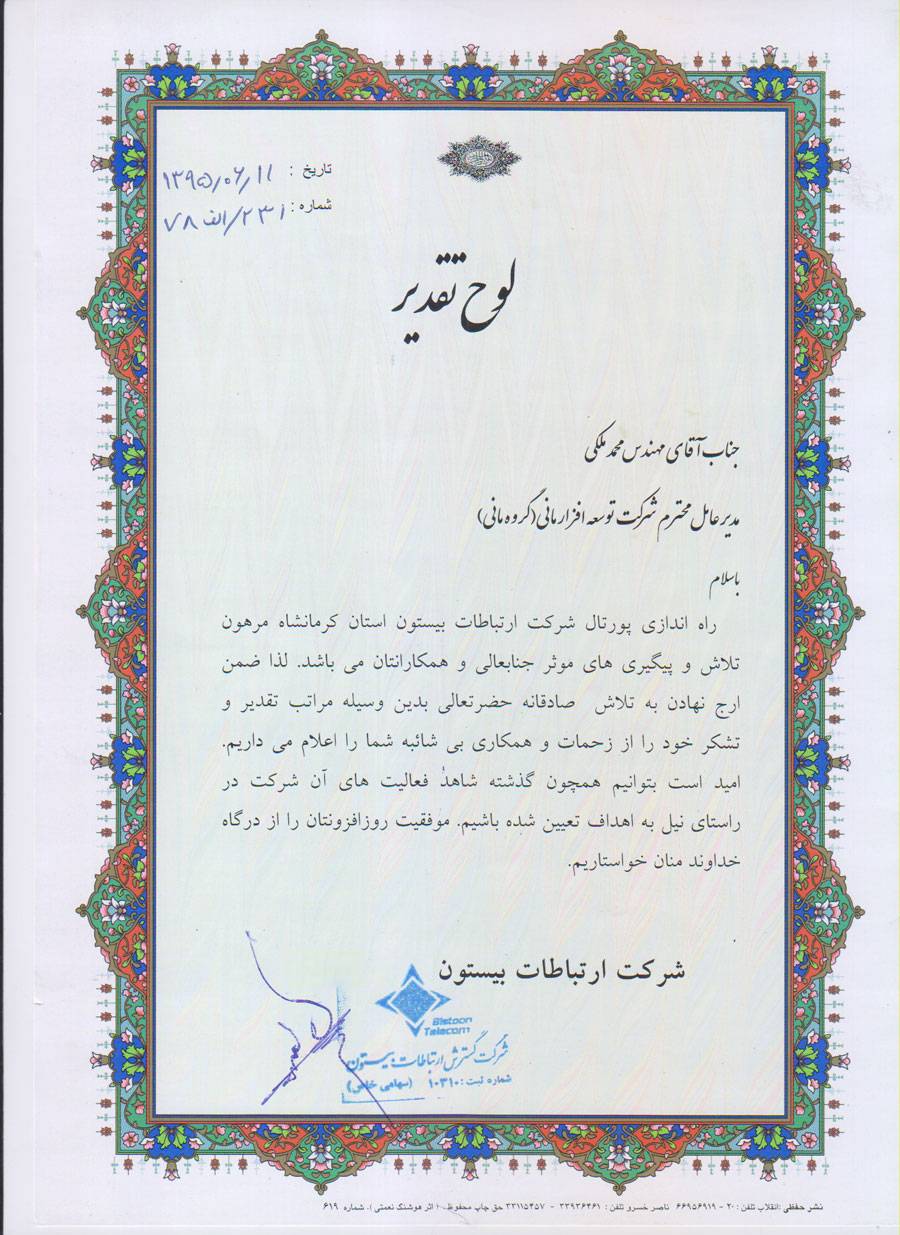 تاریخ : ۱۳۹۵/۰۶/۱۱
شماره : ۲۳۱/الف۷۸
لوح تقدیر
جناب آقای مهندس محمد ملکی
مدیرعامل محترم شرکت توسعه افزار مانی (گروه مانی)
باسلام
راه اندازی پورتال شرکت ارتباطات بیستون استان کرمانشاه مرهون
تلاش و پیگیری های موثر جنابعالی و همکارانتان می باشد. لذا ضمن
ارج نهادن به تلاش صادقانه حضرتعالی بدین وسیله مراتب تقدیر و
تشکر خود را از زحمات و همکاری بی شائبه شما را اعلام می داریم.
امید است بتوانیم همچون گذشته شاهد فعالیت های آن شرکت در
راستای نیل به اهداف تعیین شده باشیم. موفقیت روزافزونتان را از درگاه
خداوند منان خواستاریم.
شرکت ارتباطات بیستون
Bistoon
Telecom
شرکت گسترش ارتباطات بیستون
شماره ثبت : ۱۰۳۱۰ (سهامی خاص)
نشر حفظی :انقلاب تلفن : ۲۰ - ۶۶۹۵۶۹۱۹ ناصر خسرو تلفن : ۳۳۹۳۶۴۶۱ - ۳۳۱۱۵۴۵۷ حق چاپ محفوظ . ( اثر هوشنگ نعمتی ). شماره ۶۱۹